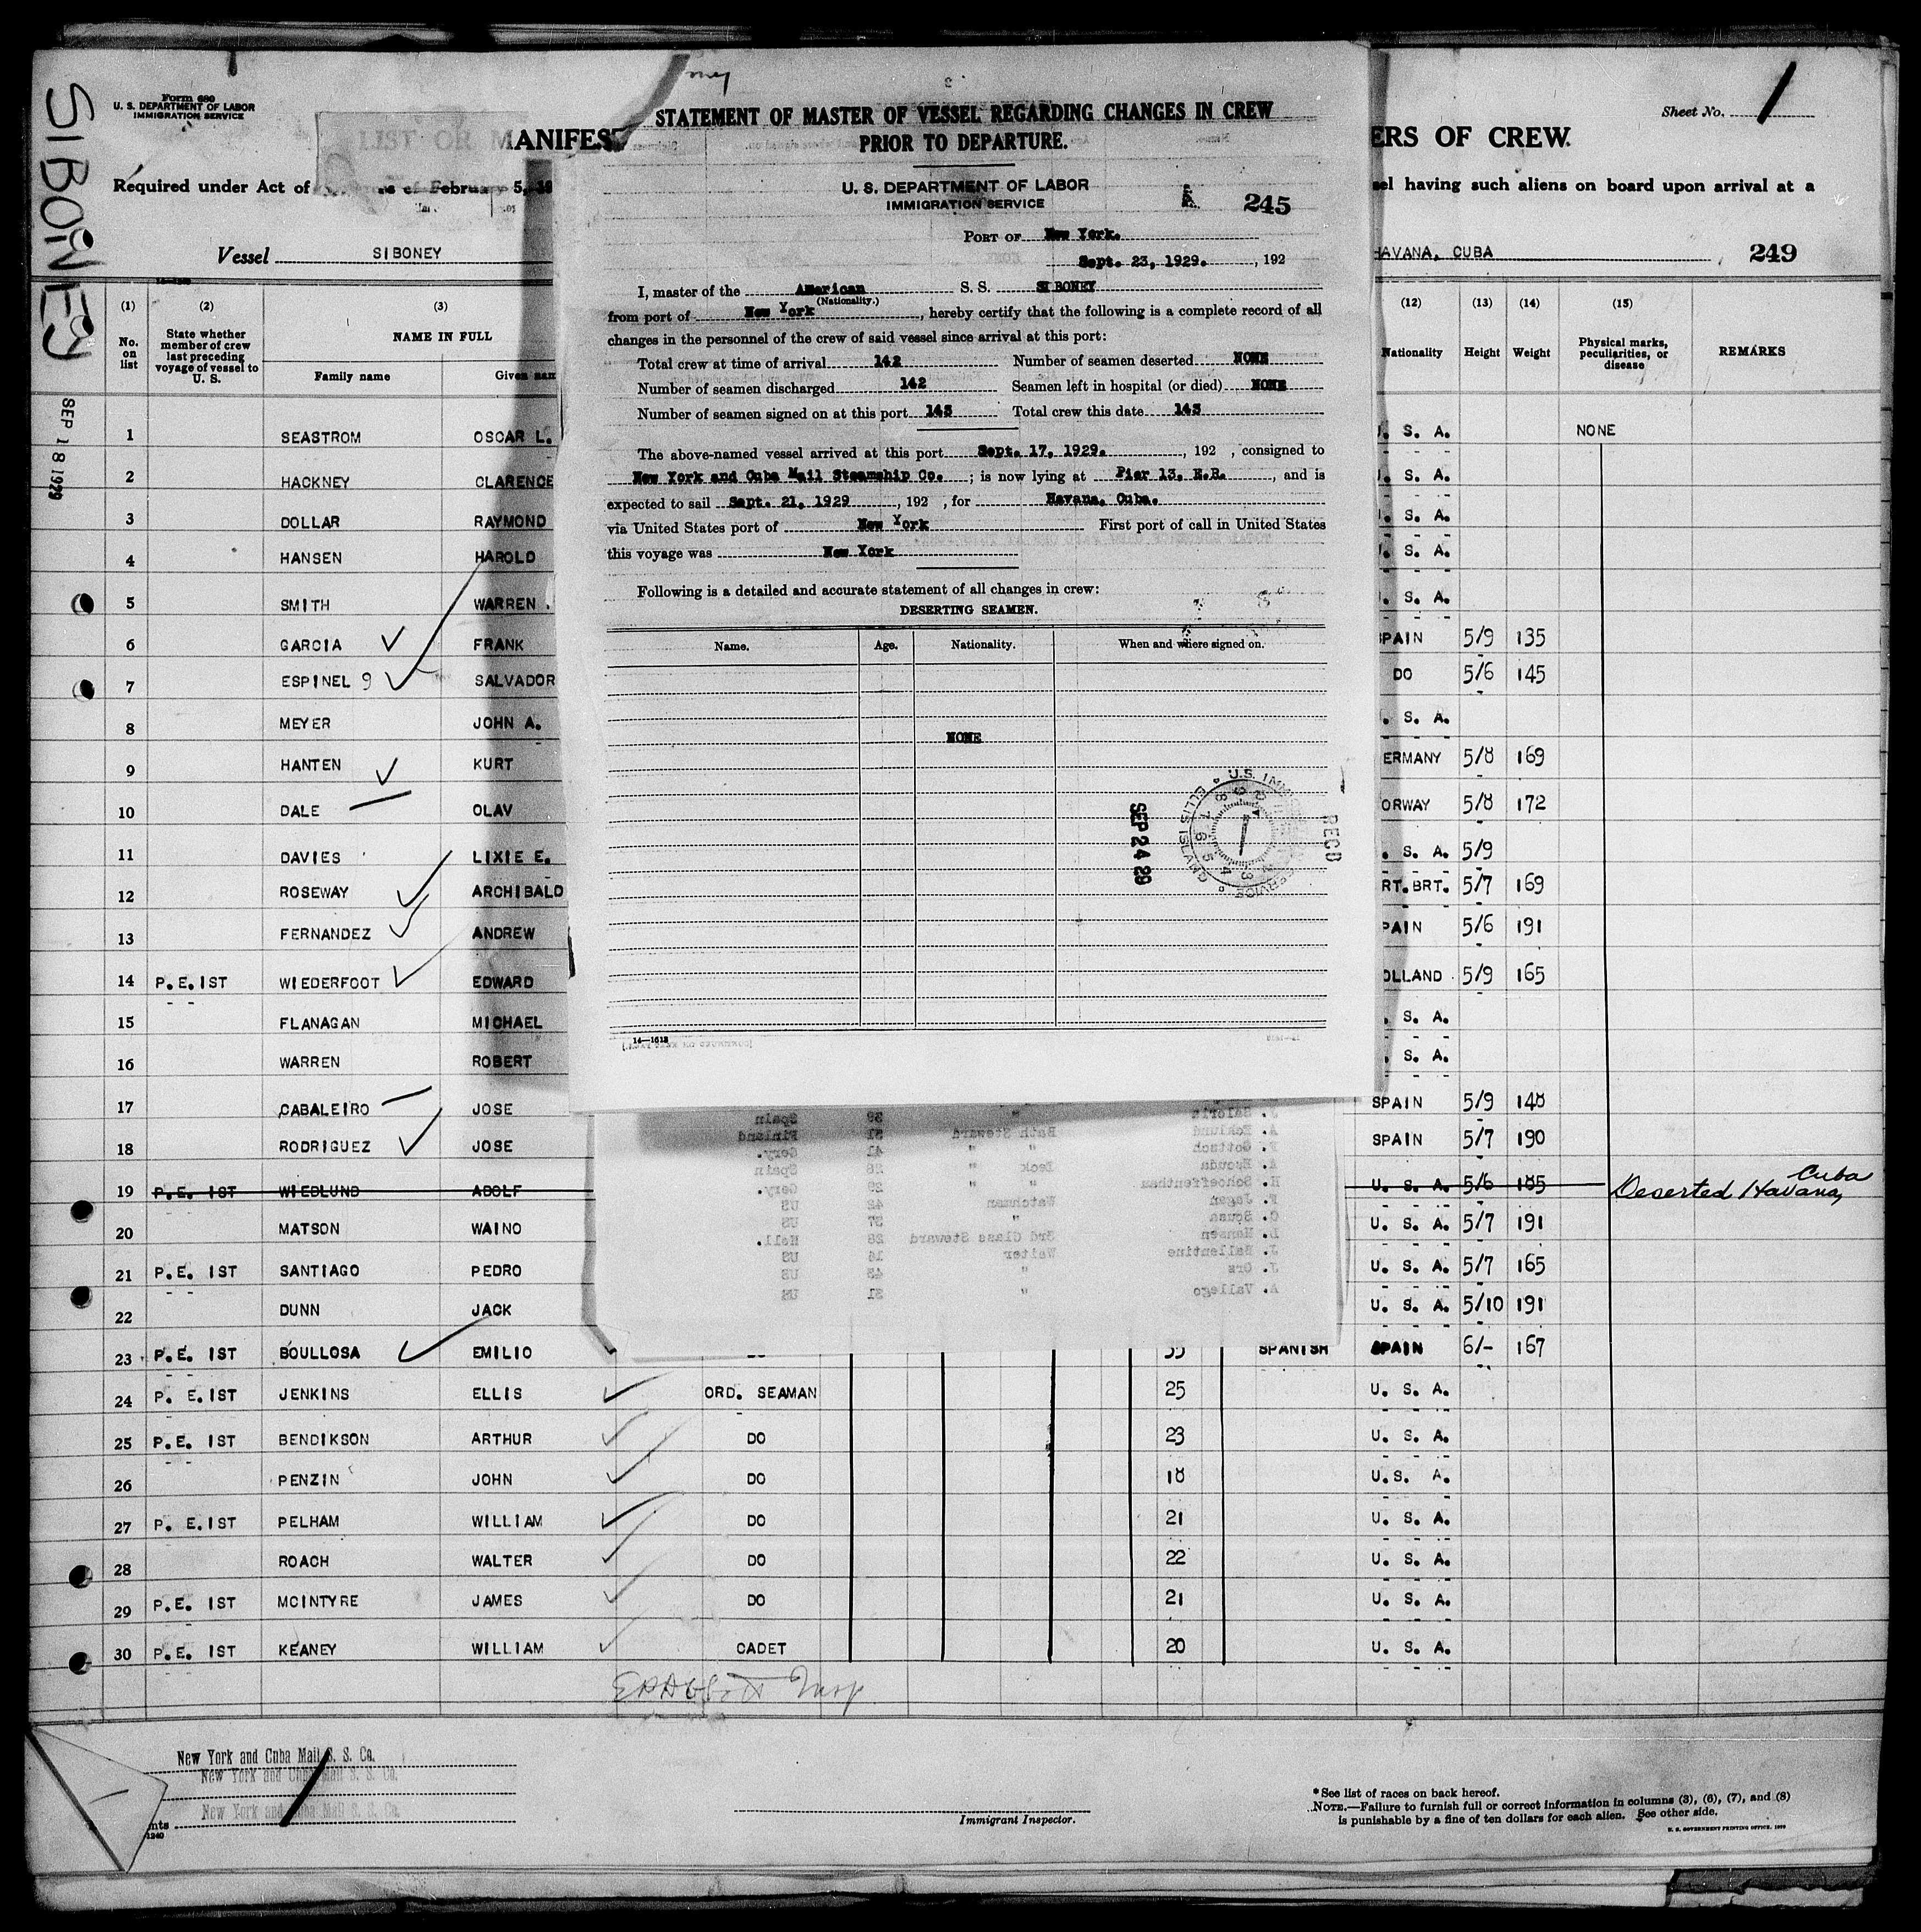 SIBONEY
SEP 18 1929
Form 680
U. S. DEPARTMENT OF LABOR
IMMIGRATION SERVICE
LIST OR MANIFEST
ERS OF CREW.
Sheet No. 1
Required under Act of
of February 5, 19
sel having such aliens on board upon arrival at a
Vessel SIBONEY
HAVANA, CUBA
249
(1) (2) (3) (12) (13) (14) (15)
No. on list
State whether member of crew last preceding voyage of vessel to U. S.
NAME IN FULL
Family name Given nam
Nationality Height Weight
Physical marks, peculiarities, or disease
REMARKS
1 SEASTROM OSCAR L. . S. A. NONE
2 HACKNEY CLARENCE . S. A.
3 DOLLAR RAYMOND . S. A.
4 HANSEN HAROLD . S. A.
5 SMITH WARREN . . S. A.
6 GARCIA FRANK PAIN 5/9 135
7 ESPINEL 9 SALVADOR DO 5/6 145
8 MEYER JOHN A. . S. A.
9 HANTEN KURT ERMANY 5/8 169
10 DALE OLAV ORWAY 5/8 172
11 DAVIES LIXIE E. . S. A. 5/9
12 ROSEWAY ARCHIBALD RT.BRT. 5/7 169
13 FERNANDEZ ANDREW PAIN 5/6 191
14 P.E.IST WIEDERFOOT EDWARD OLLAND 5/9 165
15 FLANAGAN MICHAEL . S. A.
16 WARREN ROBERT . S. A.
17 CABALEIRO JOSE SPAIN 5/9 148
18 RODRIGUEZ JOSE SPAIN 5/7 190
19 P.E. IST WIEDLUND ADOLF U. S. A. 5/6 185 Deserted Havana, Cuba
20 MATSON WAINO U. S. A. 5/7 191
21 P.E. IST SANTIAGO PEDRO U. S. A. 5/7 165
22 DUNN JACK U. S. A. 5/10 191
23 P.E. IST BOULLOSA EMILIO 35 SPANISH SPAIN 6/- 167
24 P. E.IST JENKINS ELLIS ORD. SEAMAN 25 U. S. A.
25 P.E. IST BENDIKSON ARTHUR DO 23 U. S. A.
26 PENZIN JOHN DO 18 U.S. A.
27 P. E.IST PELHAM WILLIAM DO 21 U. S. A.
28 ROACH WALTER DO 22 U. S. A.
29 P.E. IST MCINTYRE JAMES DO 21 U. S. A.
30 P.E. IST KEANEY WILLIAM CADET 20 U. S. A.
STATEMENT OF MASTER OF VESSEL REGARDING CHANGES IN CREW
PRIOR TO DEPARTURE.
U. S. DEPARTMENT OF LABOR
IMMIGRATION SERVICE
245
PORT OF New York.
Sept. 23, 1929. , 192
I, master of the American S. S. SIBONEY
(Nationality.)
from port of New York , hereby certify that the following is a complete record of all
changes in the personnel of the crew of said vessel since arrival at this port:
Total crew at time of arrival 142 Number of seamen deserted NONE
Number of seamen discharged 142 Seamen left in hospital (or died) NONE
Number of seamen signed on at this port 143 Total crew this date 143
The above-named vessel arrived at this port Sept. 17, 1929. , 192 , consigned to
New York and Cuba Mail Steamship Co. ; is now lying at Pier 13, E.R. , and is
expected to sail Sept. 21, 1929 , 192 , for Havana, Cuba.
via United States port of New York First port of call in United States
this voyage was New York
Following is a detailed and accurate statement of all changes in crew:
DESERTING SEAMEN.
Name. Age. Nationality. When and where signed on.
NONE
SEP 24 29
U.S. IMMIGRATION SERVICE ELLIS ISLAND
RECD
14—1613
J. Salorio " 39 Spain
A. Ecklund Bath Steward 51 Finland
F. Gottsch " " 41 Gery.
A. Esouda Deck " 26 Spain
H. Schoeffenthas " " 29 Gery.
F. Jagan Watchman 42 US
C. Sousa " 57 US
D. Hansen 3rd Class Steward 28 Holl.
J. Ballentine Waiter 14 US
J. Ors " 43 US
A. Vallego " 31 US
Insp
New York and Cuba Mail S. S. Co.
New York and Cuba Mail S. S. Co.
New York and Cuba Mail S. S. Co.
nts
1240
Immigrant Inspector.
* See list of races on back hereof.
NOTE.—Failure to furnish full or correct information in columns (3), (6), (7), and (8)
is punishable by a fine of ten dollars for each alien. See other side.
U. S. GOVERNMENT PRINTING OFFICE. 1929